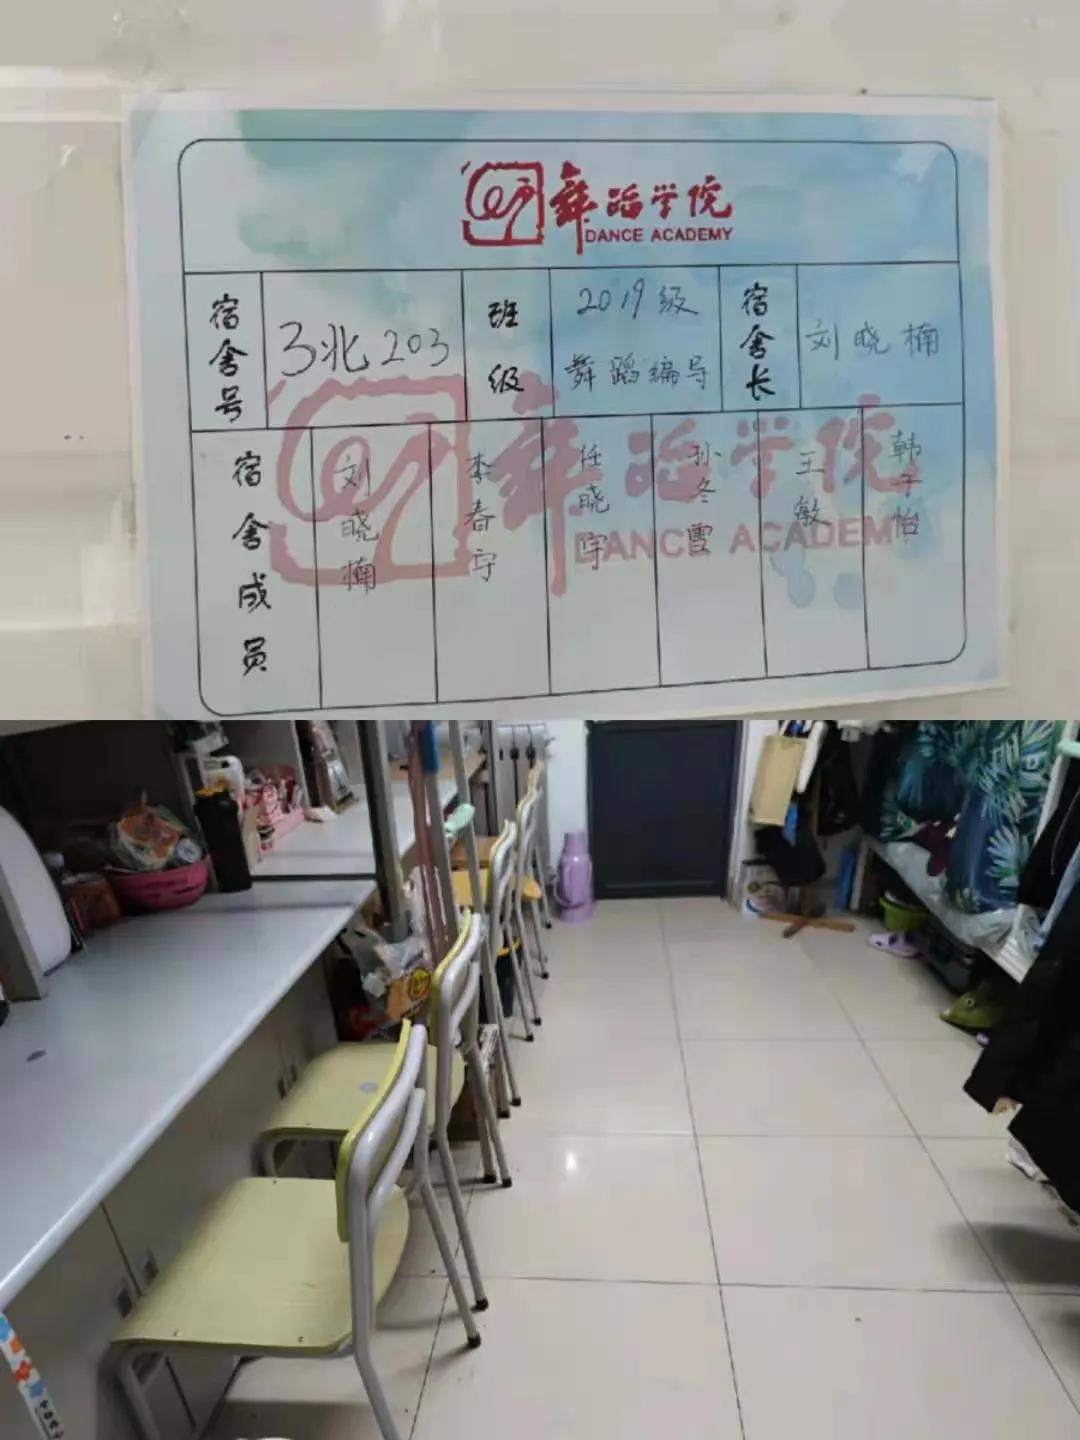 舞蹈学院
DANCE ACADEMY
宿舍号
3北203
班级
2019级
舞蹈编导
宿舍长
刘晓楠
宿舍成员
刘晓楠
李春宇
任晓宇
孙冬雪
王敏
韩子怡
舞蹈学院
DANCE ACADEM